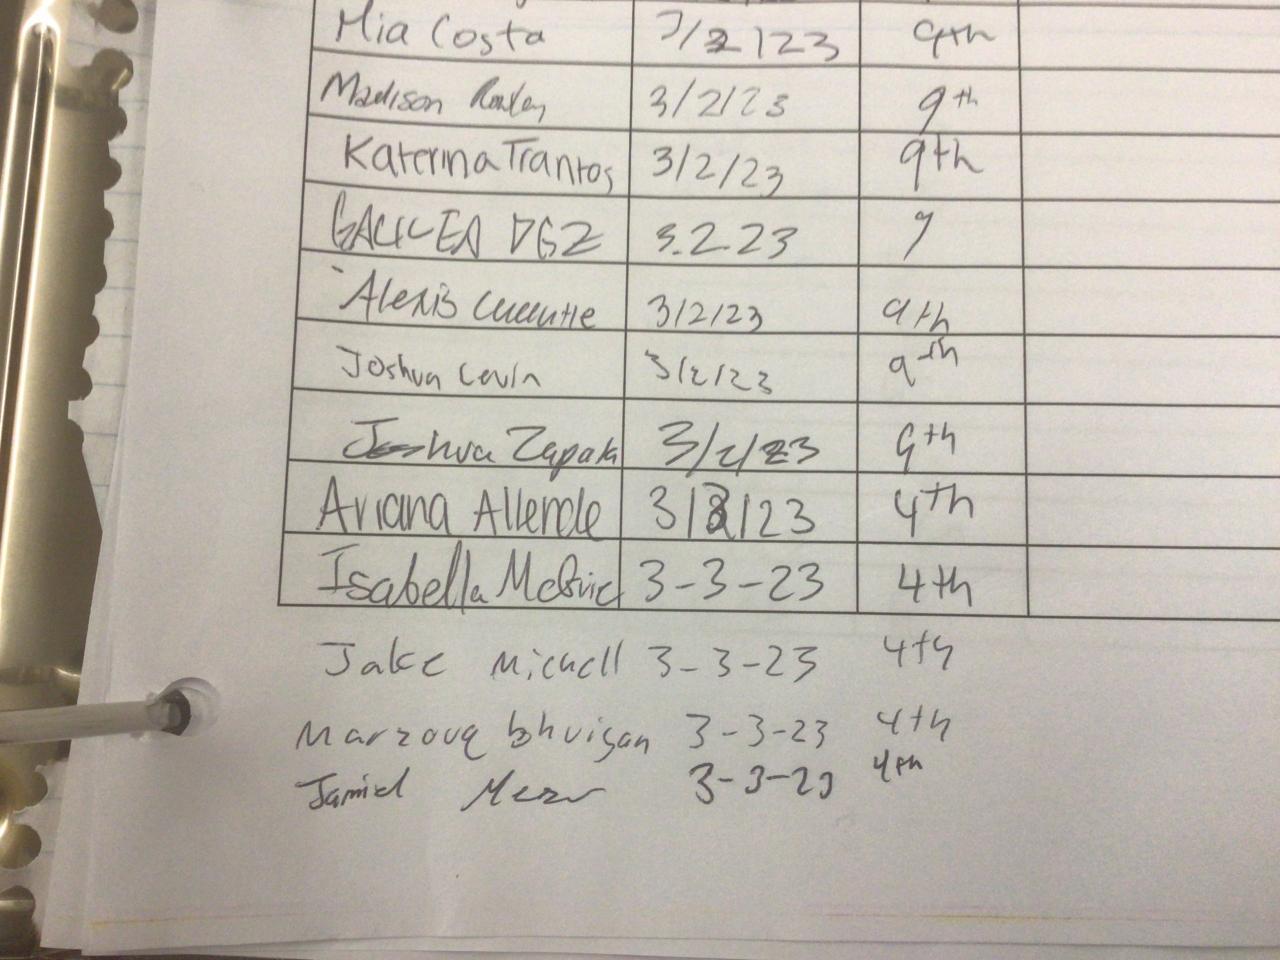 Mia Costa 3/2/23 9th
Madison 3/2/23 9th
Katerina Trantos 3/2/23 9th
GALILEA DGZ 3.2.23 9
Alexis 3/2/23 9th
Joshua Levin 3/2/23 9th
Joshua Zapata 3/2/23 9th
Ariana Allende 3/3/23 4th
Isabella 3-3-23 4th
Jake Michell 3-3-23 4th
Marzouq bhuiyan 3-3-23 4th
3-3-23 4th